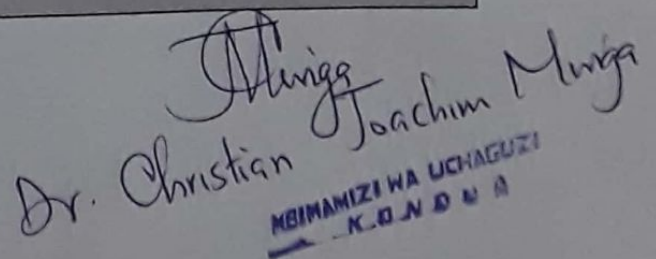 Munga
Dr. Christian Joachim Munga
MSIMAMIZI WA UCHAGUZI
KONDOA